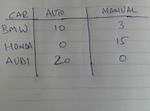 CAR AUTO MANUAL
BMW 10 3
HONDA 0 15
AUDI 20 0